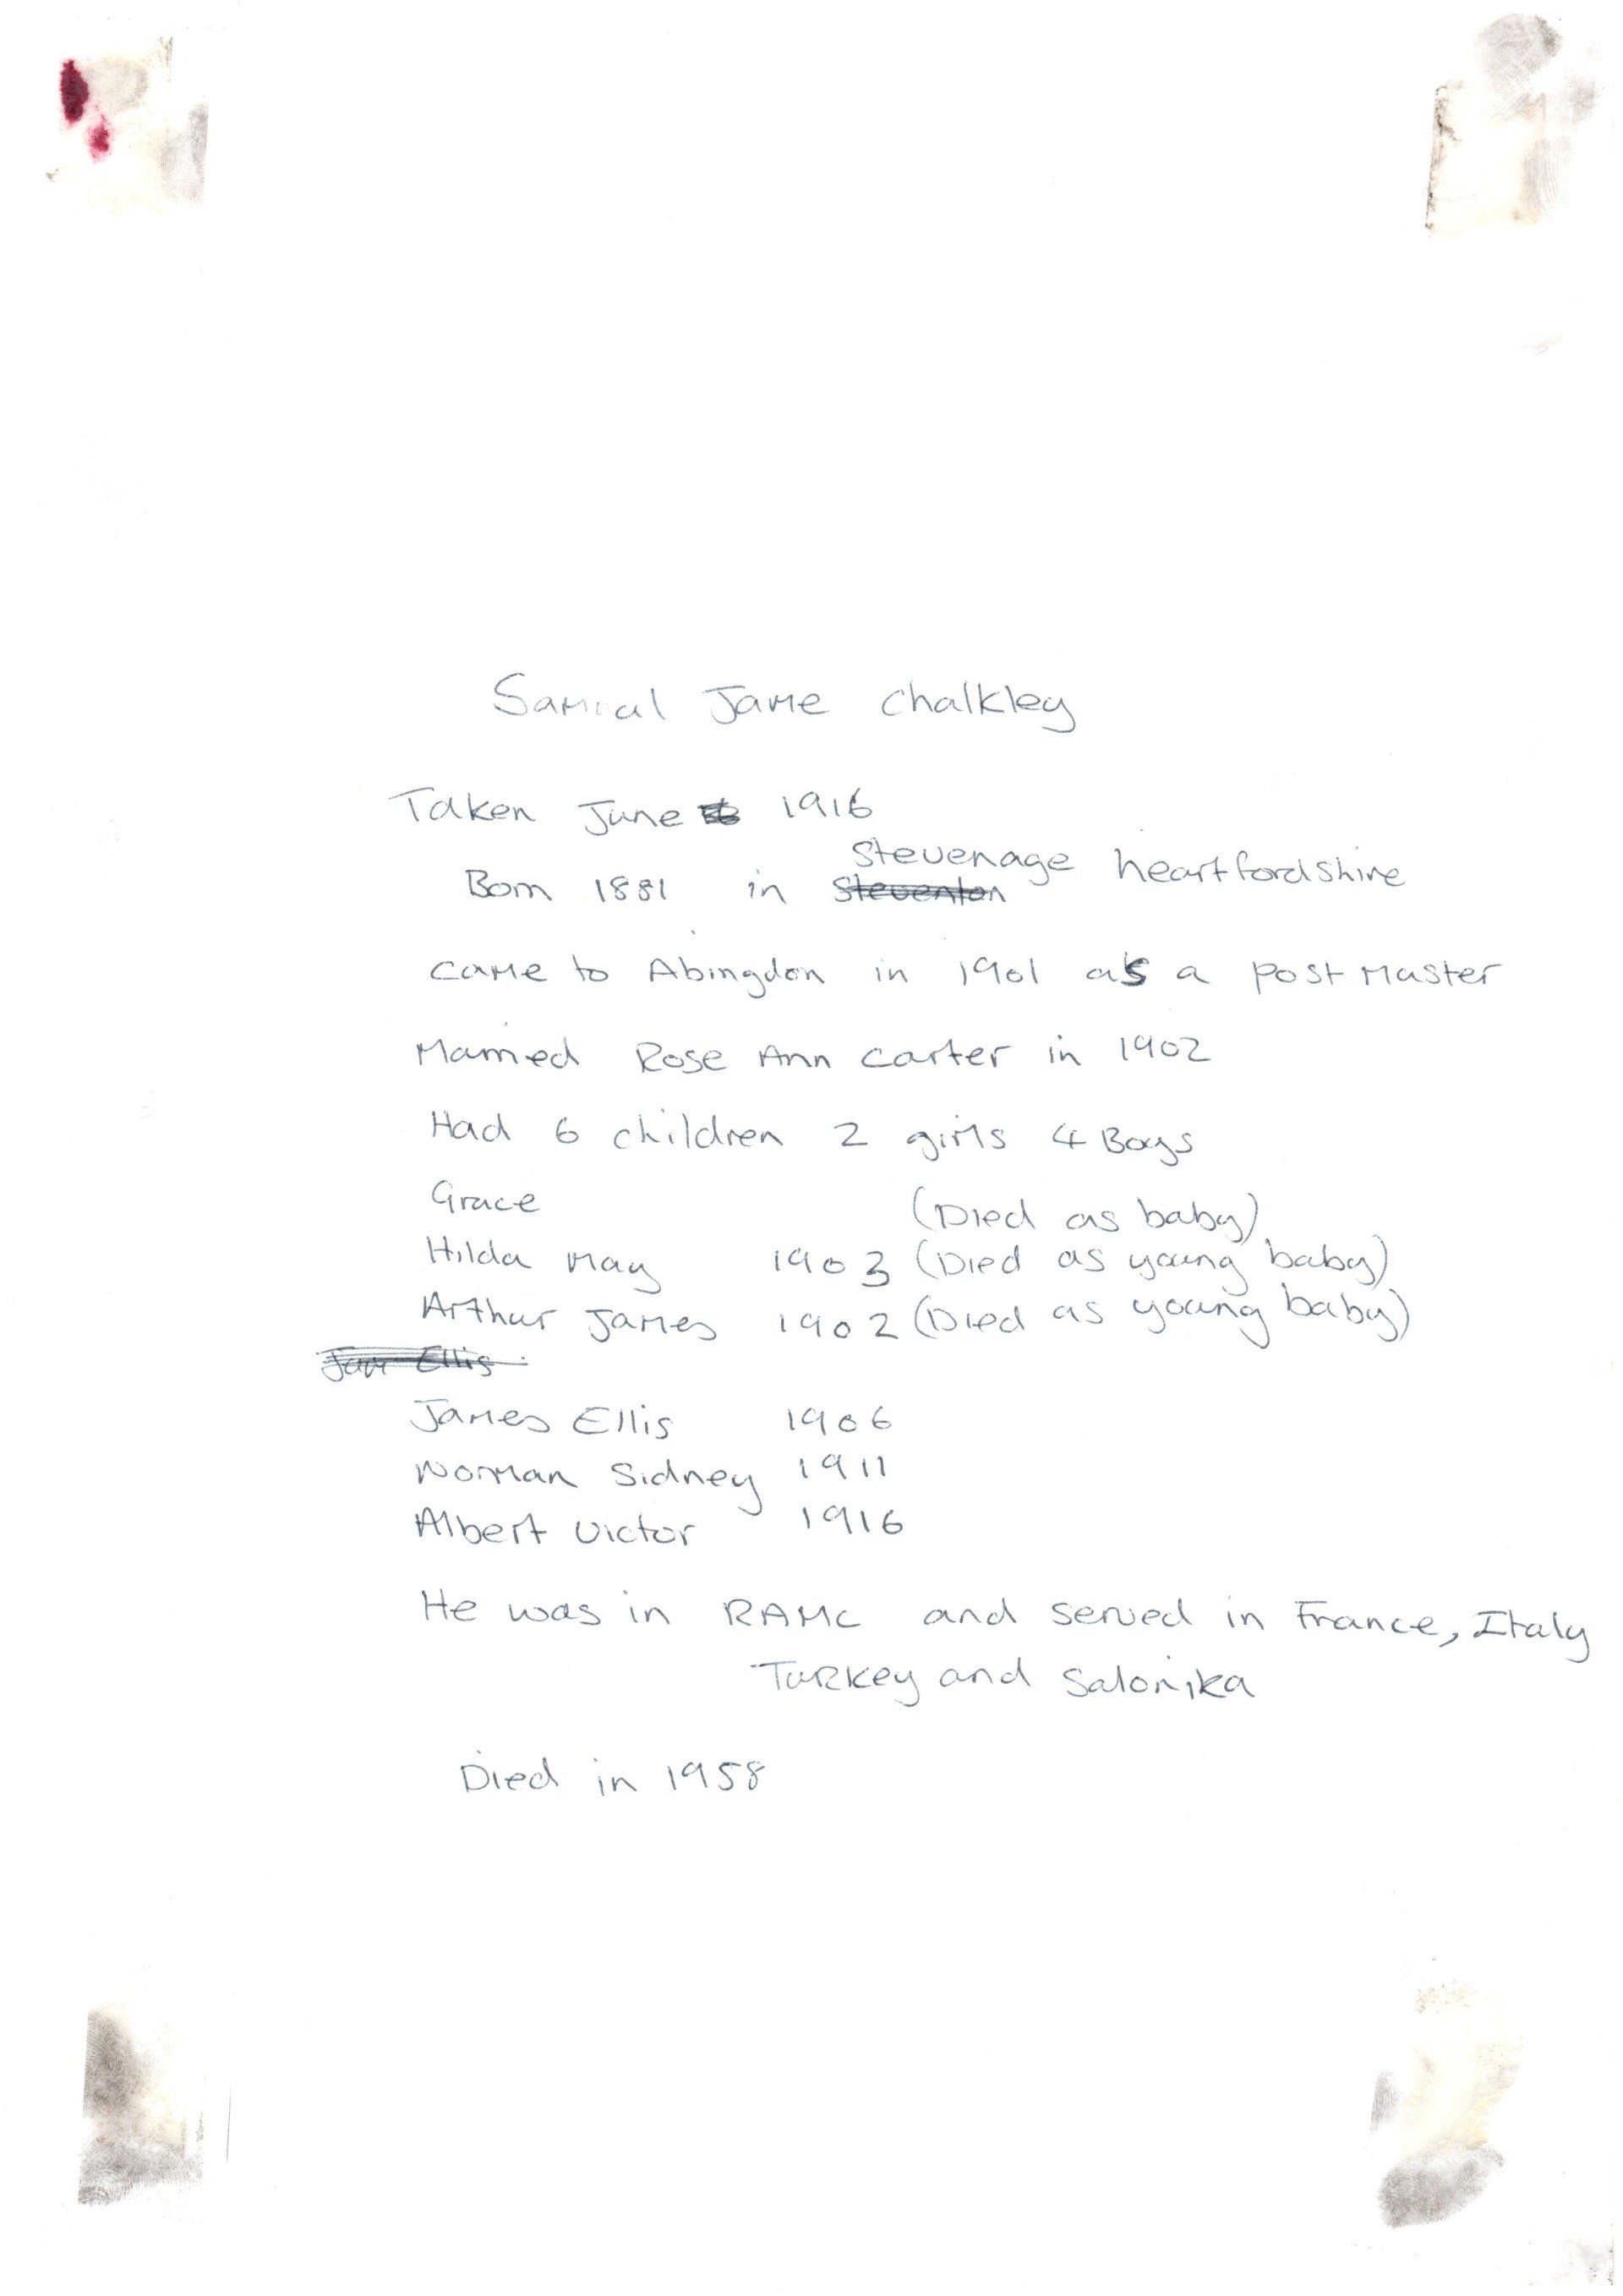 Samual Jame Chalkley
Taken June 1916
Born 1881 in Steventon Stevenage heartfordshire
came to Abingdon in 1901 as a post Master
Married Rose Ann Carter in 1902
Had 6 children 2 girls 4 Boys
Grace (Died as baby)
Hilda May 1903 (Died as young baby)
Arthur James 1902 (Died as young baby)
Ellis
James Ellis 1906
Norman Sidney 1911
Albert Victor 1916
He was in RAMC and served in France, Italy
Turkey and Salonika
Died in 1958